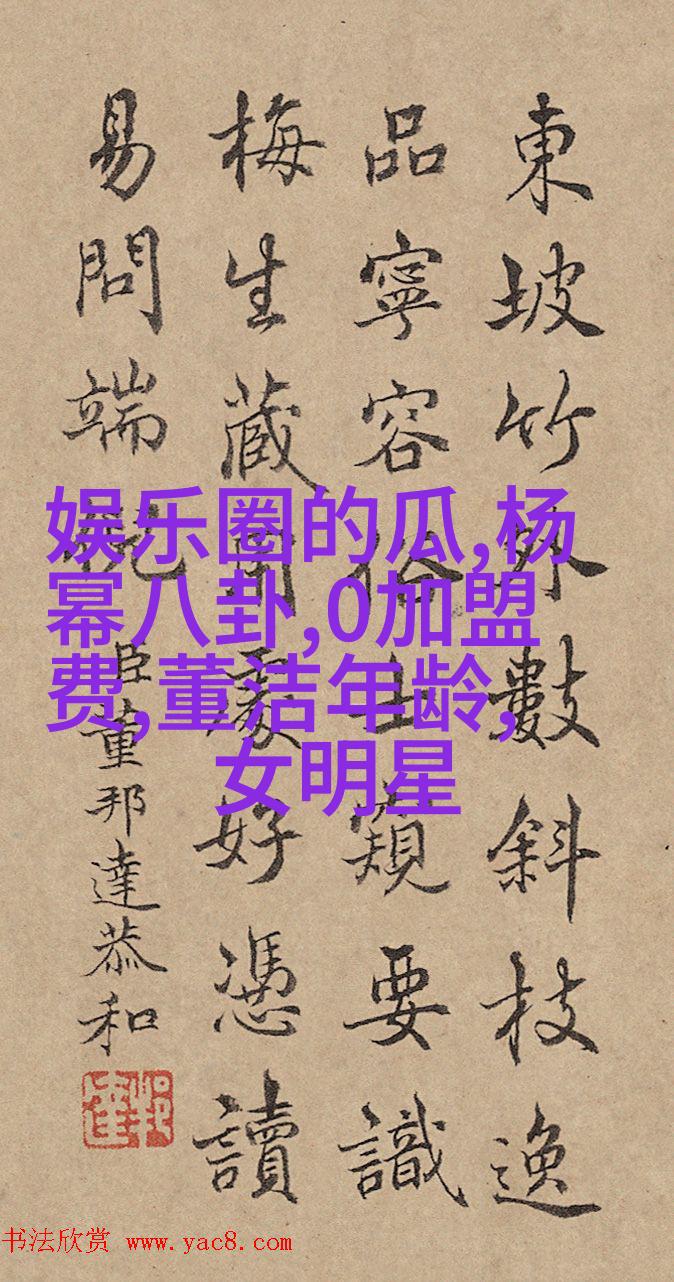 東坡竹外數斜枝逸
品寧容俗士窺要識
梅生藏處好憑讀
易問端
臣董邦達恭和
娱乐圈的瓜,杨
幂八卦,0加盟
费,董洁年龄,
女明星
书法欣赏 www.yac8.com